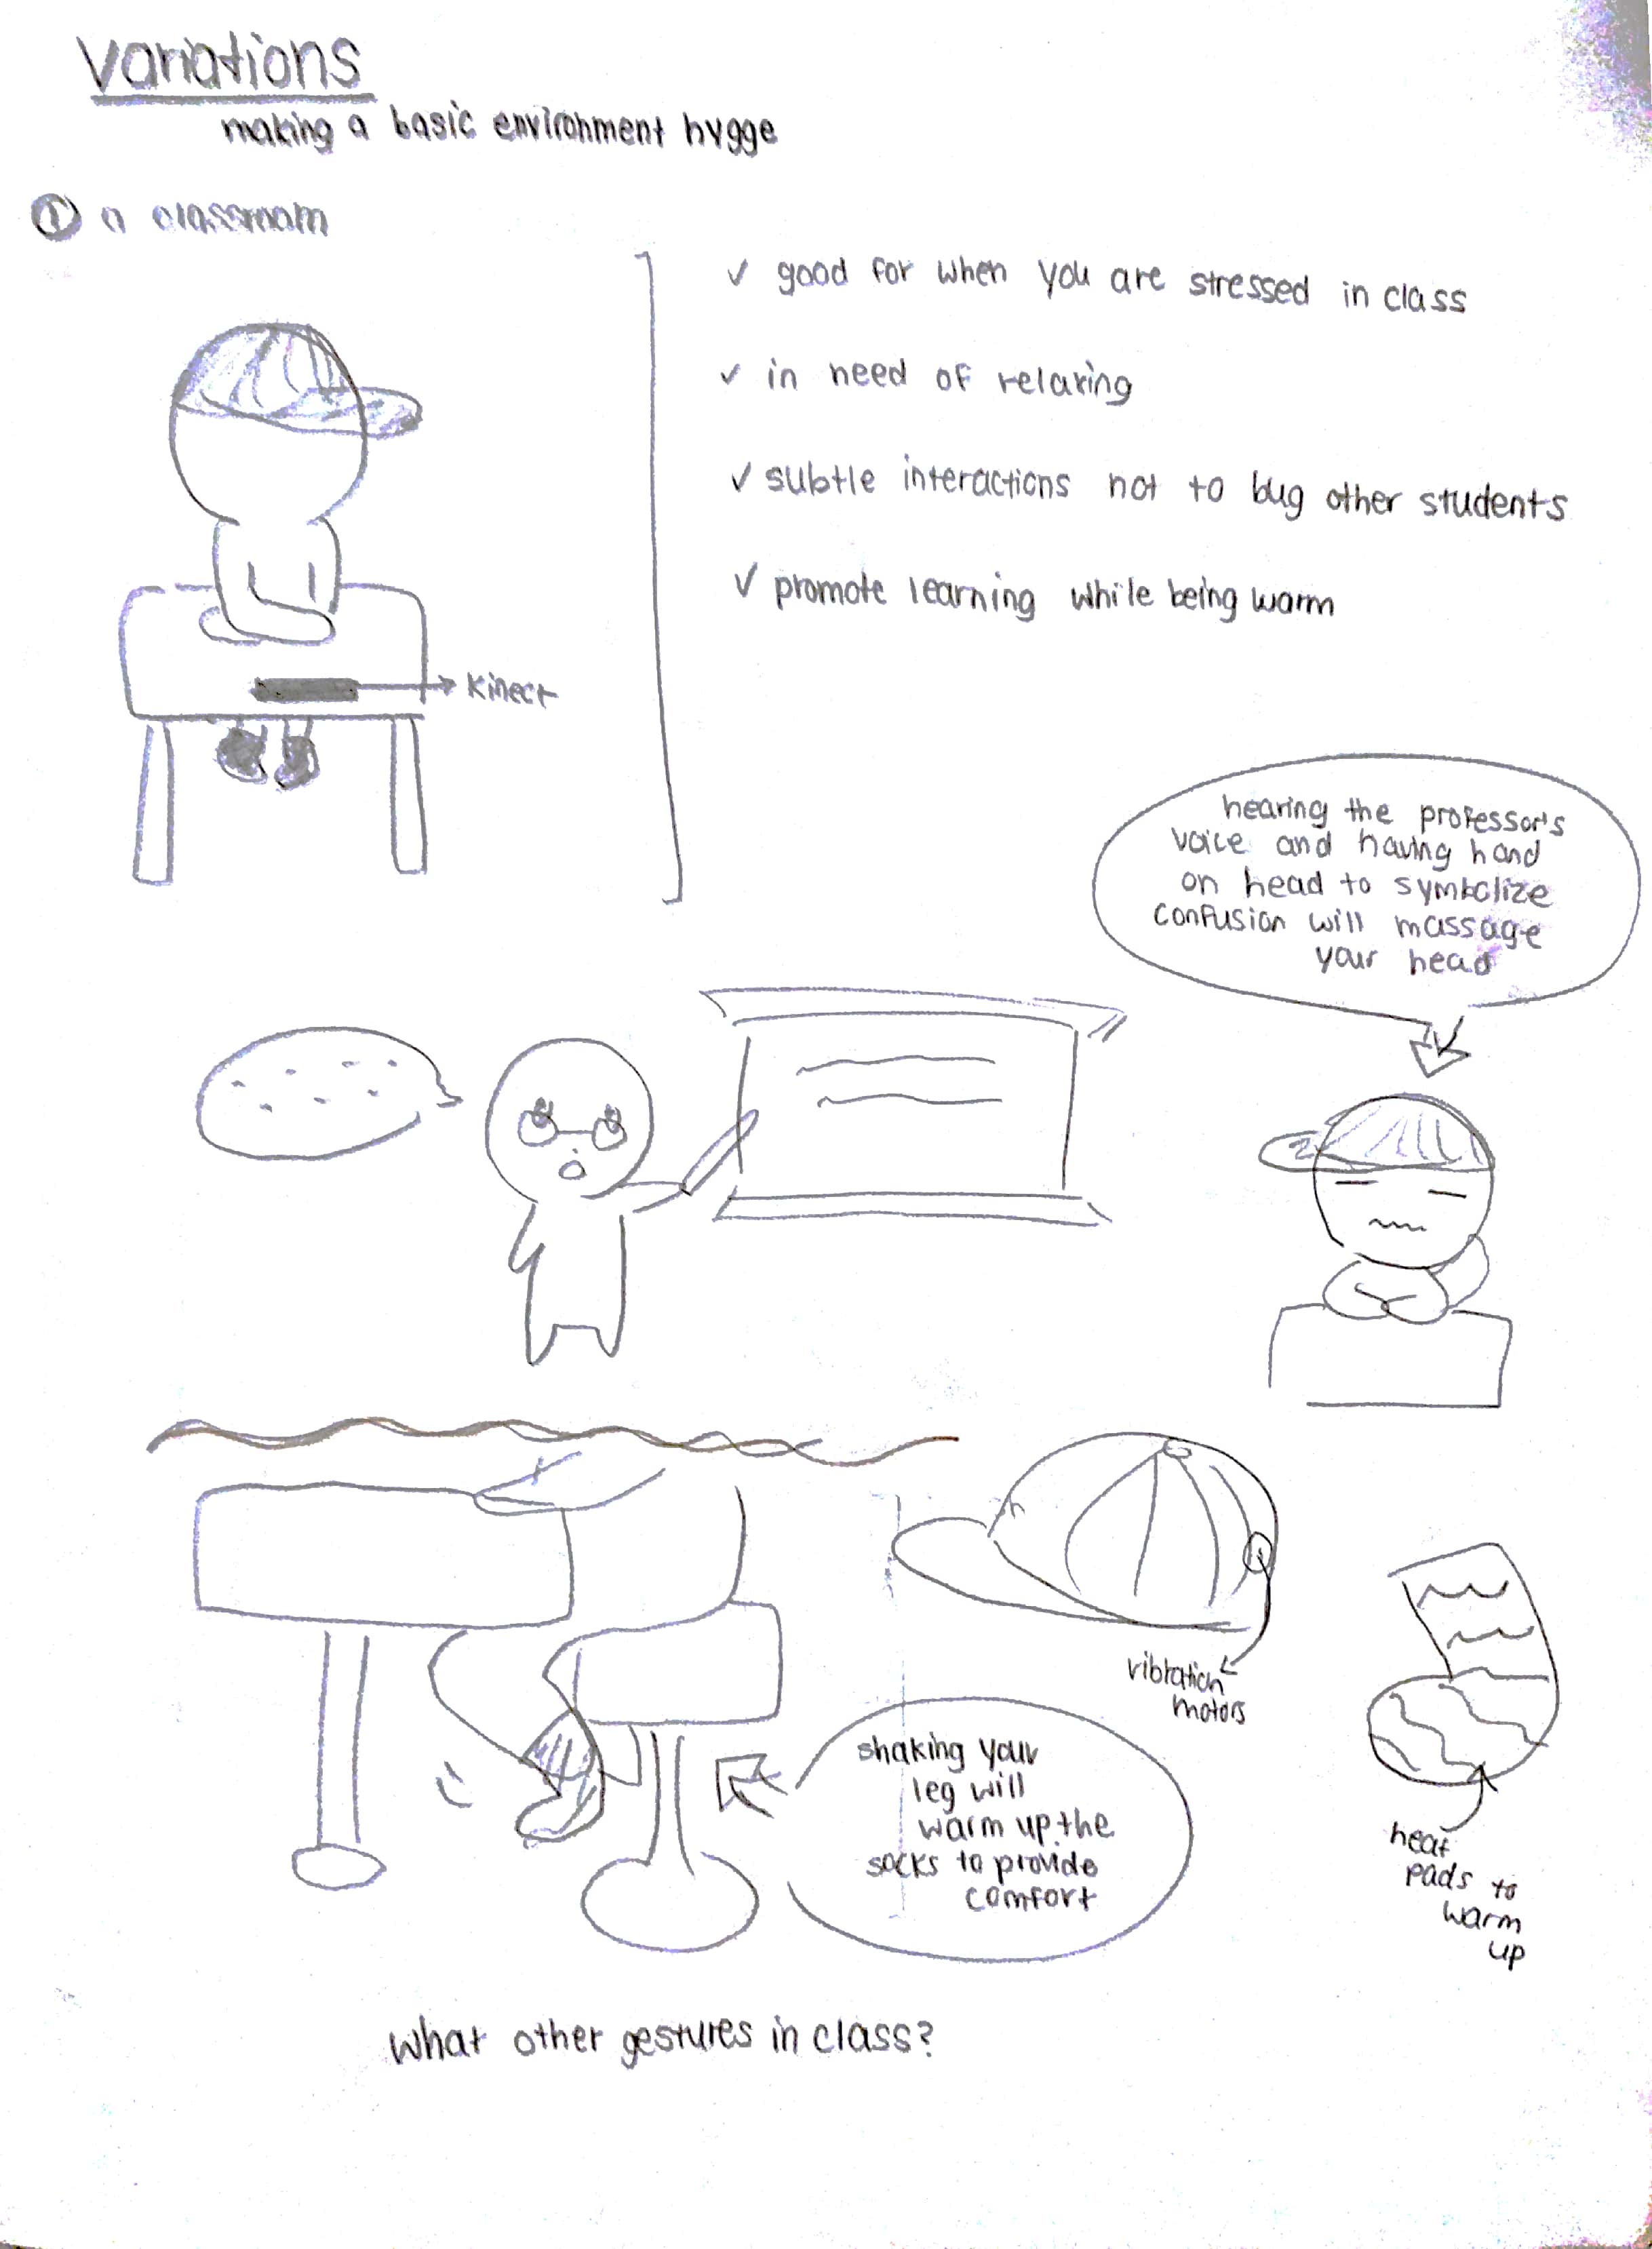 Variations
making a basic environment hygge
① a classroom
✓ good for when you are stressed in class
✓ in need of relaxing
✓ subtle interactions not to bug other students
✓ promote learning while being warm
Kinect
hearing the professor's
voice and having hand
on head to symbolize
confusion will massage
your head
vibration
motors
shaking your
leg will
warm up the
socks to provide
comfort
heat
pads to
warm
up
What other gestures in class?